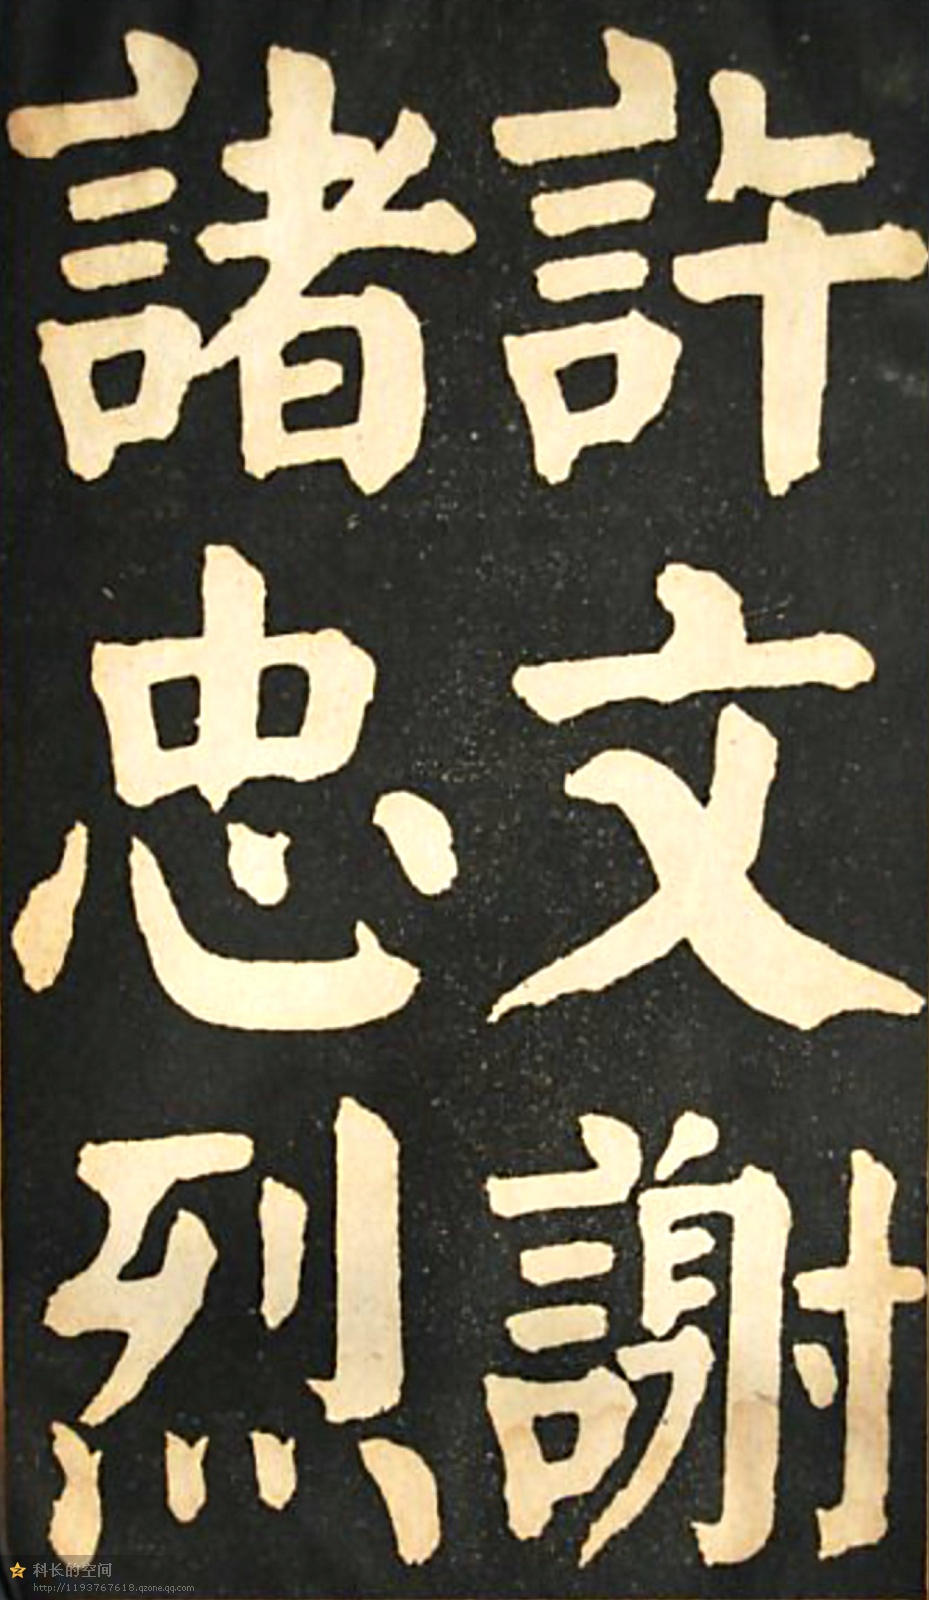 許文謝
諸忠烈
科长的空间
http://1193767618.qzone.qq.com